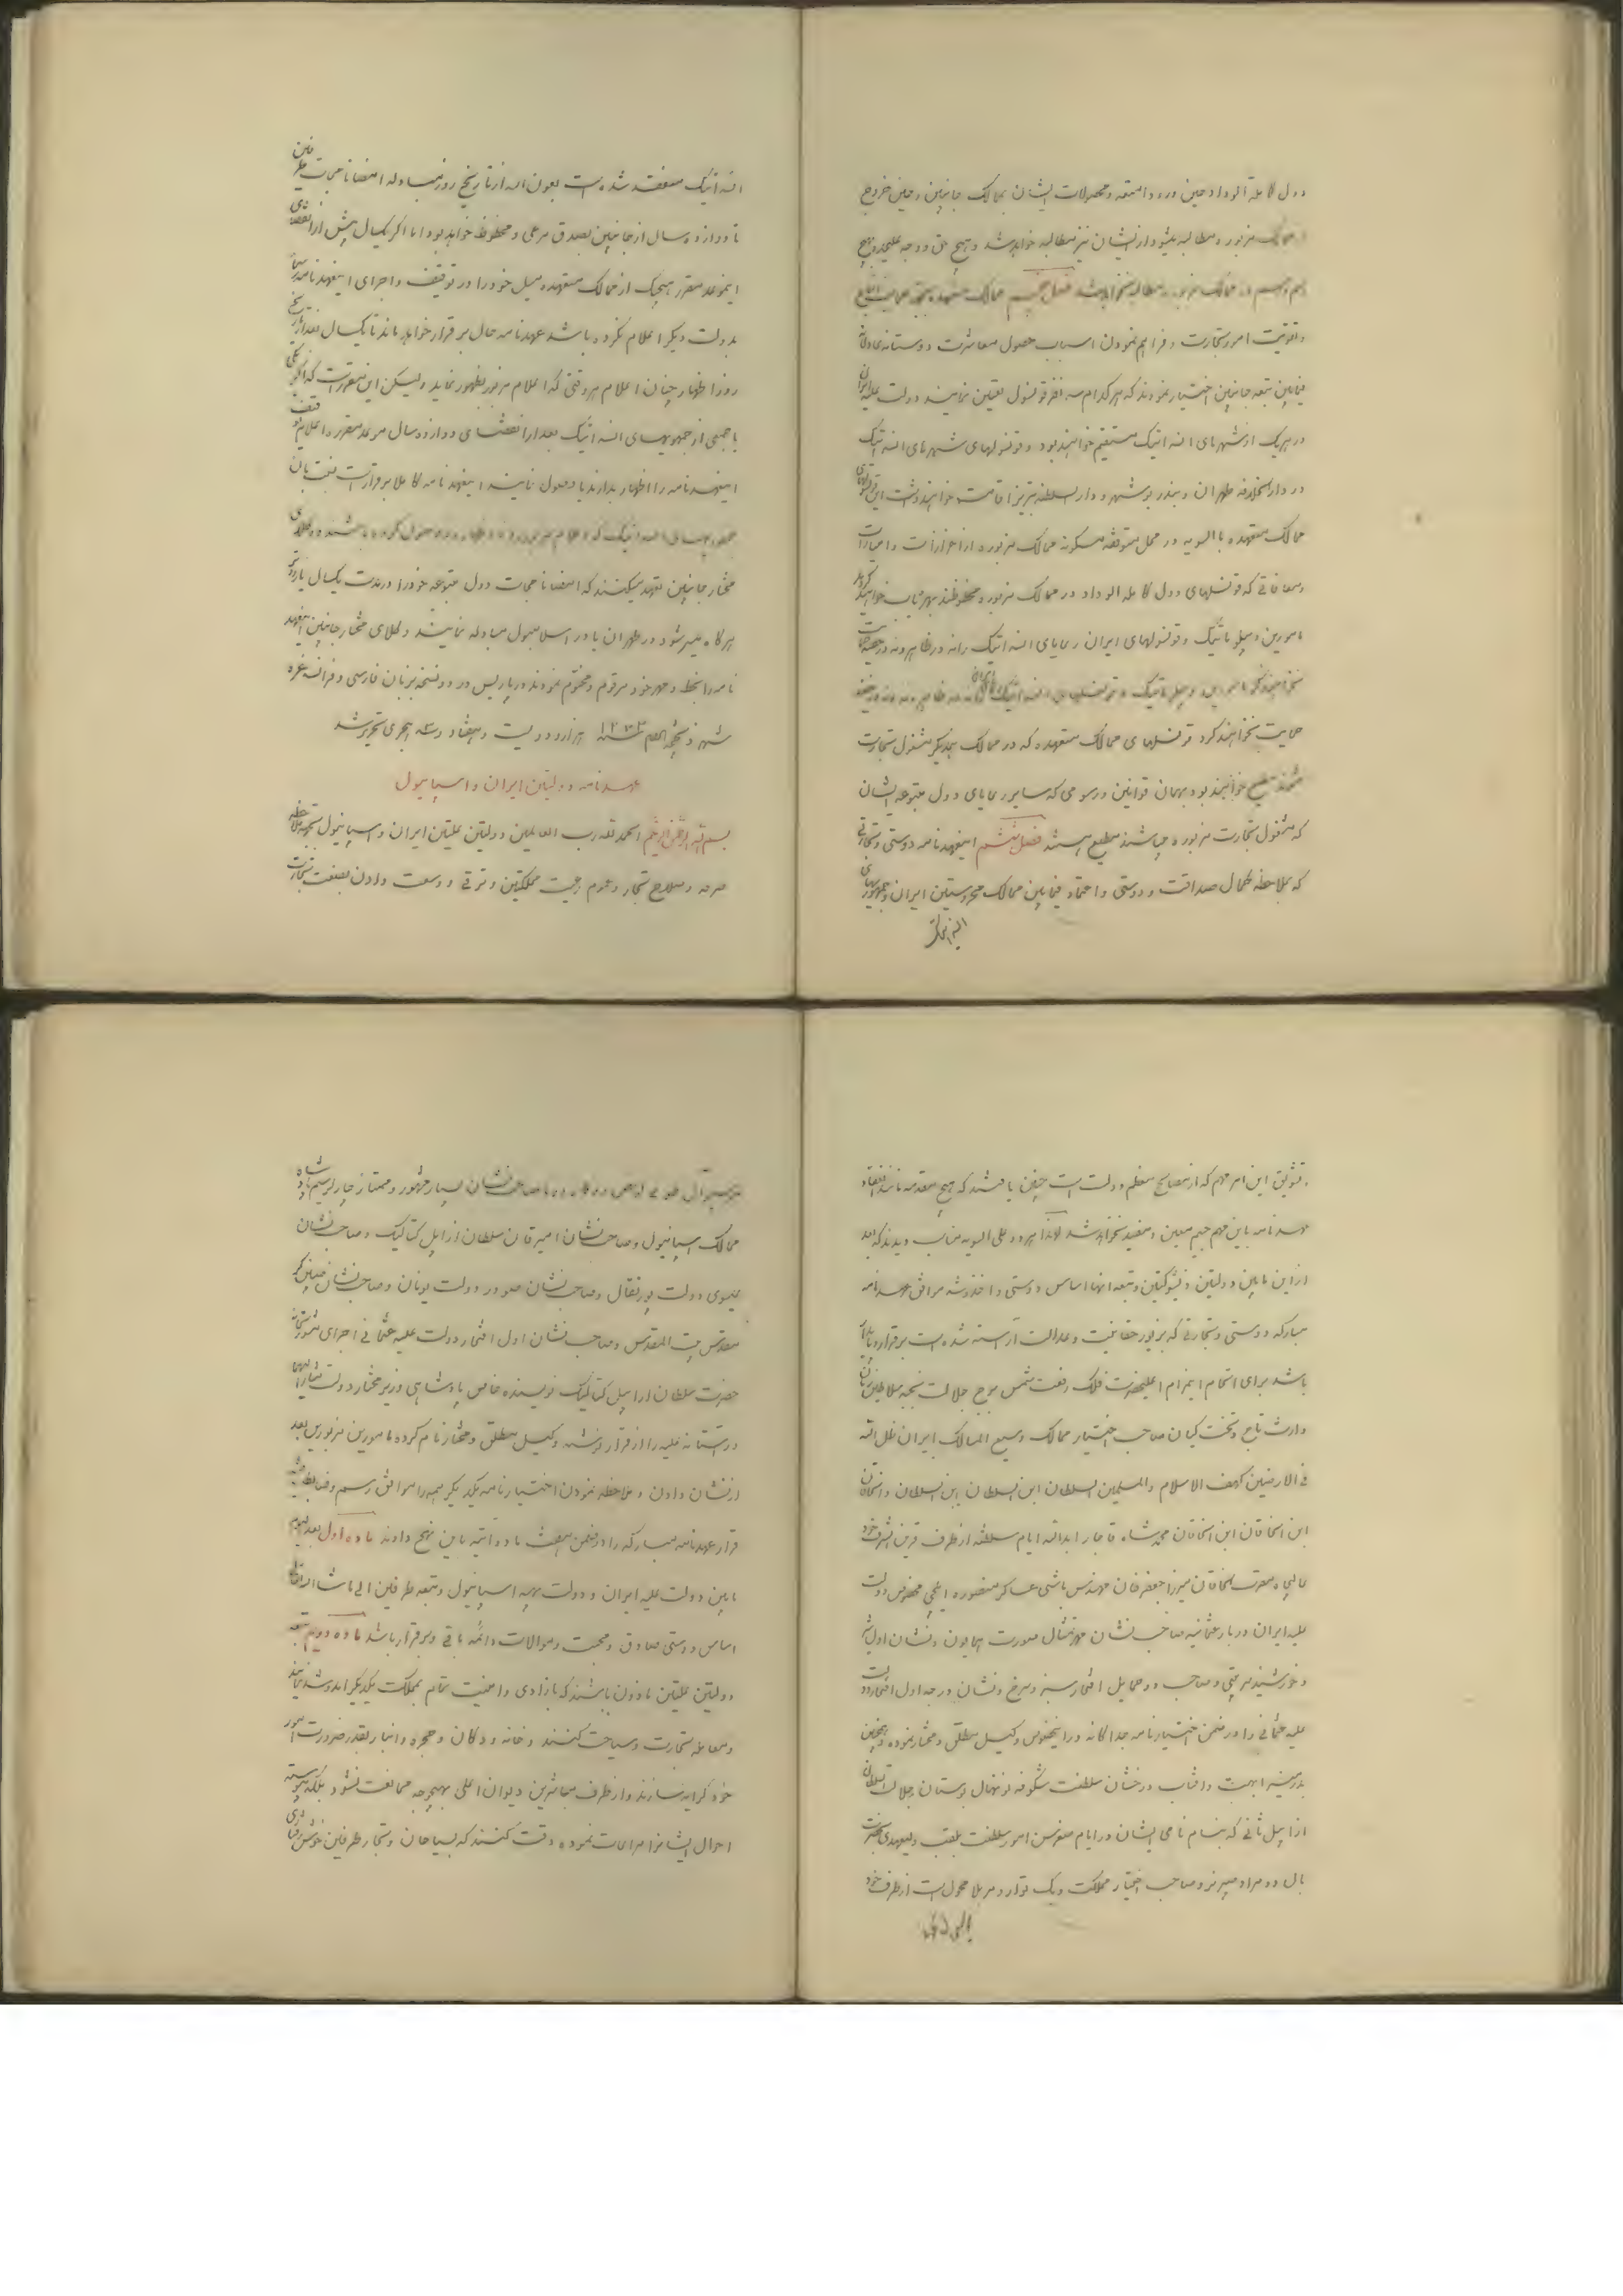 دول کاملة الوداد حین ورود امتعه و محصولات ایشان بممالک جانبین و حین خروج
مزبور مطالبه میشود از ایشان نیز مطالبه خواهد شد و هیچ حق و وجه علیحده بهیچ
اسم و رسم در ممالک مزبوره مطالبه نخواهد شد فصل پنجم ممالک متعهده بجهة حمایت اتباع
و تقویت امور تجارت و فراهم نمودن اسباب حصول معاشرت دوستانه و عادلانه
فیمابین تبعه جانبین اختیار نمودند که هر کدام سه نفر قونسول تعیین نمایند دولت علیه ایران
در هر یک از شهرهای انسه اتیک مستقیم خواهند بود و قونسولهای شهرهای انسه اتیک
در دار الخلافه طهران و بندر بوشهر و دار السلطنه تبریز اقامت خواهند داشت این قونسولهای
ممالک متعهده بالسویه در محل متوقفه مسکونه ممالک مزبوره از اعزازات و امتیازات
و معافاتی که قونسلهای دول کاملة الوداد در ممالک مزبوره محظوظند بهره یاب خواهند گردید
مامورین دیپلوماتیک و قونسولهای ایران رعایای انسه اتیک را نه در ظاهر و نه در خفیه حمایت
نخواهند کرد مامورین دیپلوماتیک و قونسلهای انسه اتیک رعایای ایران را نه در ظاهر و نه در خفیه
حمایت نخواهند کرد قونسلهای ممالک متعهده که در ممالک همدیگر مشغول تجارت
میشوند مطیع خواهند بود بهمان قوانین و رسومی که سایر رعایای دول متبوعه ایشان
که مشغول تجارت مزبوره میباشند مطیع هستند فصل ششم این عهدنامه دوستی و تجارتی
که بملاحظه کمال صداقت و دوستی و اعتماد فیمابین ممالک محروستین ایران و جمهورهای
انسه اتیک
انسه اتیک منعقد شده است بعون الله از تاریخ روز مبادله امضا نامجات طرفین
تا دوازده سال از جانبین بصدق مرعی و محظوظ خواهد بود اما اگر یکسال پیش از انقضای
این موعد مقرر هیچیک از ممالک متعهده میل خود را در توقیف و اجرای این عهدنامه رسما
بدولت دیگر اعلام نکرده باشد عهدنامه حال برقرار خواهد ماند تا یکسال بعد از تاریخ
روز اظهار چنان اعلام هر وقتی که اعلام مزبور بظهور نماید ولیکن این مقرر است که اگر یکی
یا جمعی از جمهوریهای انسه اتیک بعد از انقضای دوازده سال موعد مقرر اعلام توقیف
این عهدنامه را اظهار بدارند یا معمول نمایند این عهدنامه کاملا برقرار است نسبت بآن
جمهوریهای انسه اتیک که اعلام مزبور را اظهار و معمول نکرده باشند وکلای
مختار جانبین تعهد میکنند که امضا نامجات دول متبوعه خود را در مدت یکسال یا زودتر
هرگاه میسر شود در طهران یا در اسلامبول مبادله نمایند وکلای مختار جانبین این عهد
نامه را بخط و مهر خود مرقوم و مختوم نمودند در پاریس در دو نسخه بزبان فارسی و فرانسه غره
شهر ذیقعدة الحرام سنه ۱۲۷۳ هزار و دویست و هفتاد و سه هجری تحریر شد
عهدنامه دولتین ایران و اسپانیول
بسم الله الرحمن الرحیم الحمد لله رب العالمین دولتین علیتین ایران و اسپانیول بجهة ملاحظه
صرفه و صلاح تجار و عموم رعیت مملکتین و ترقی و وسعت دادن بصنعت تجارت
و توثیق این امر مهم که از مصالح معظم دولت است چنین یافتند که هیچ مقدمه مانند انعقاد
عهدنامه باین مهم جسیم معین و مفید نخواهد شد لهذا هر دو علی السویه مناسب دیدند که بعد
از این مابین دولتین ذیشوکتین و تبعه آنها اساس دوستی و اخذ وثیقه موافق عهدنامه
مبارکه دوستی و تجارتی که بزیور حقانیت و عدالت آراسته شده است برقرار و پایدار
باشد برای انجام این مرام اعلیحضرت فلک رفعت شمس موج جلالت نتیجه سلاطین زمان
وارث تاج و تخت کیان صاحب اختیار ممالک وسیع المسالک ایران ظل الله
فی الارضین کهف الاسلام والمسلمین السلطان ابن السلطان ابن السلطان والخاقان
ابن الخاقان ابن الخاقان محمد شاه قاجار ابدالله ایام سلطنه از طرف قرین الشرف خود
عالیجاه مقرب الخاقان میرزا جعفر خان مهندس باشی عساکر منصوره ایلچی مخصوص دولت
علیه ایران در دربار عثمانیه صاحب نشان مهر تمثال صورت همایون و نشان اول شیر
و خورشید مرتبتی و صاحب دو حمایل افتخار سبز و سرخ و نشان درجه اول افتخار دولت
علیه عثمانی را در ضمن اختیارنامه جداگانه در این خصوص وکیل مطلق و مختار نموده و همچنین
بدر منیر ابهت و آفتاب درخشان سلطنت شکوفه نو نهال بوستان جلالت سلطان
ازاپیل ثانی که بنام نامی ایشان در ایام صغر سن امور سلطنت بلقب ولیعهدی
بال دومرا و میر نر و صاحب اختیار مملکت ویک توار و مر بلا محول است از طرف خود
جنرال صاحب نشان بسیار مشهور و ممتاز چارلز سیم پادشاه
ممالک اسپانیول و صاحب نشان امیرقان سلطان ازاپل کتالیک و صاحب نشان
عیسوی دولت پورتقال و صاحب نشان صودر دولت یونان و صاحب نشان
مقدس بیت المقدس و صاحب نشان اول افتخار دولت علیه عثمانی اجرای
حضرت سلطان ازاپیل کتالیک نویسنده خاص پادشاهی وزیر مختار دولت مشار الیها
در آستانه علیه را از قرار نوشته وکیل مطلق و مختار نام کرده مامورین مزبورین بعد
از نشان دادن و ملاحظه نمودن اختیارنامه یکدیگر همه را موافق رسم و ضابطه
قرار عهدنامه مبارکه را در ضمن هفت ماده آتیه باین نهج دادند ماده اول بعد الیوم
مابین دولت علیه ایران و دولت بهیه اسپانیول و تبعه طرفین الی ماشاء الله تعالی
اساس دوستی صادق و محبت و موالات دائمه باقی و برقرار باشد ماده دویم تبعه
دولتین علیتین ماذون باشند که بآزادی و امنیت تمام بمملکت یکدیگر آمد و شد نمایند
و معامله تجارت و سیاحت کنند و خانه و دکان و حجره و انبار بقدر ضرورت امور
خود کرایه سازند و از طرف مباشرین دیوان اعلی بهیچوجه ممانعت نشود بلکه پیوسته
احوال ایشان را مراعات نموده دقت کنند که بسیاحان و تجار طرفین خوش رفتاری